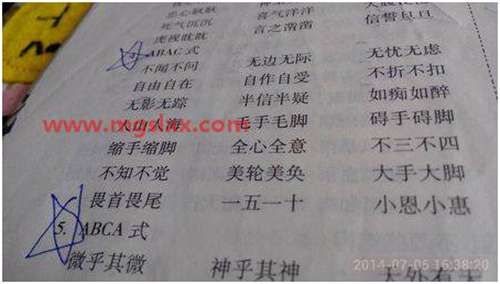 死气沉沉 喜气洋洋
虎视眈眈 言之凿凿 信誓旦旦
ABAC 式
不闻不问 无边无际 无忧无虑
自由自在 自作自受 不折不扣
无影无踪 半信半疑 如痴如醉
人山人海 毛手毛脚 碍手碍脚
www.mgslxx.com
缩手缩脚 全心全意 不三不四
不知不觉 美轮美奂 大手大脚
畏首畏尾 一五一十 小恩小惠
5. ABCA 式
微乎其微 神乎其神 天外有天
2014-07-05 16:38:20